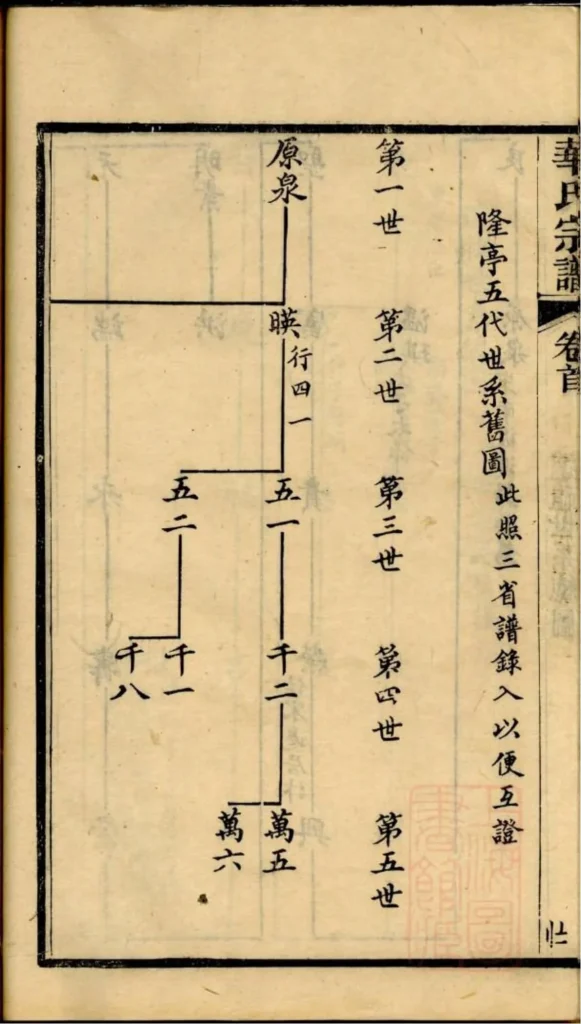 華氏宗譜
卷首
隆亭五代世系舊圖 此照三省譜錄入以便互證
第一世
第二世
第三世
第四世
第五世
原泉
暎 行四一
五一
千二
萬五
萬六
五二
千一
千八